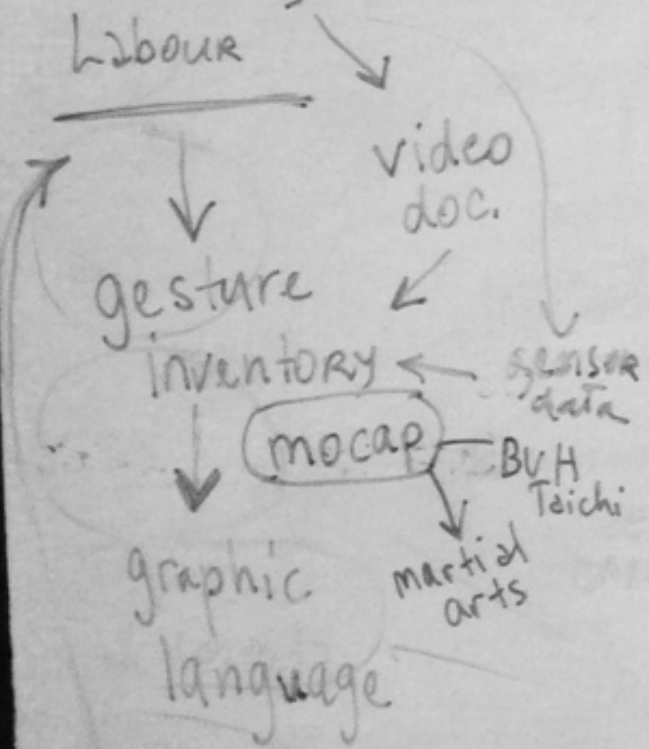 Labour
video
doc.
gesture
inventory
sensor
data
mocap
BVH
Taichi
martial
arts
graphic
language